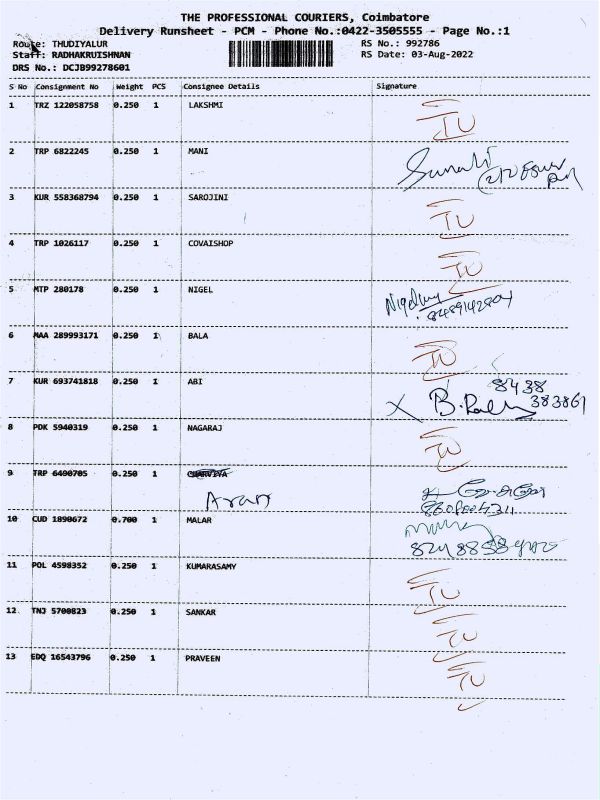 THE PROFESSIONAL COURIERS, Coimbatore
Delivery Runsheet - PCM - Phone No.:0422-3505555 - Page No.:1
Route: THUDIYALUR
RS No.: 992786
Staff: RADHAKRUISHNAN
RS Date: 03-Aug-2022
DRS No.: DCJB99278601
S No Consignment No Weight PCS Consignee Details Signature
1 TRZ 122058758 0.250 1 LAKSHMI
2 TRP 6822245 0.250 1 MANI
3 KUR 558368794 0.250 1 SAROJINI
4 TRP 1026117 0.250 1 COVAISHOP
5 MTP 280178 0.250 1 NIGEL
6 MAA 289993171 0.250 1 BALA
7 KUR 693741818 0.250 1 ABI
8438
383861
8 PDK 5940319 0.250 1 NAGARAJ
9 TRP 6490705 0.250 1
10 CUD 1890672 0.700 1 MALAR
11 POL 4598352 0.250 1 KUMARASAMY
12 TNJ 5700823 0.250 1 SANKAR
13 EDQ 16543796 0.250 1 PRAVEEN